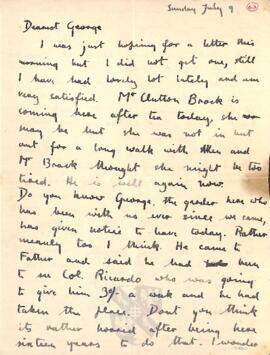 Sunday July 9
63
Dearest George
I was just hoping for a letter this
morning but I did not get one, still
I have had lovely lot lately and am
very satisfied. Mr Clutton Brock is
coming here after tea today, she
may be but she was not in but
out for a long walk with Alan and
Mr Brock thought she might be too
tired. He is well again now.
Do you know George, the gardener here who
has been with us ever since we came,
has given notice to leave today. Rather
meanly too I think. He came to
Father and said he had been
to see Col. Ricardo who was going
to give him 39/ a week and he had
taken the place. Dont you think
its rather horrid after being here
sixteen years to do that. I wonder